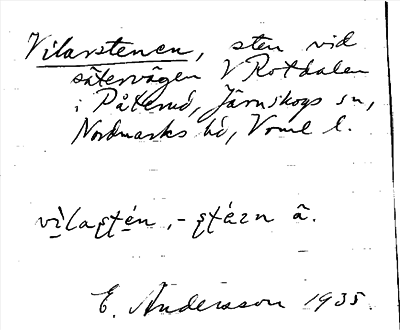 Vilarstenen, sten vid
sätervägen V Rotdalen
i Påterud, Järnskogs sn,
Nordmarks hd, Vrml l.
vìlaʂʈén, -ʂʈézn ã.
E. Andersson 1935.